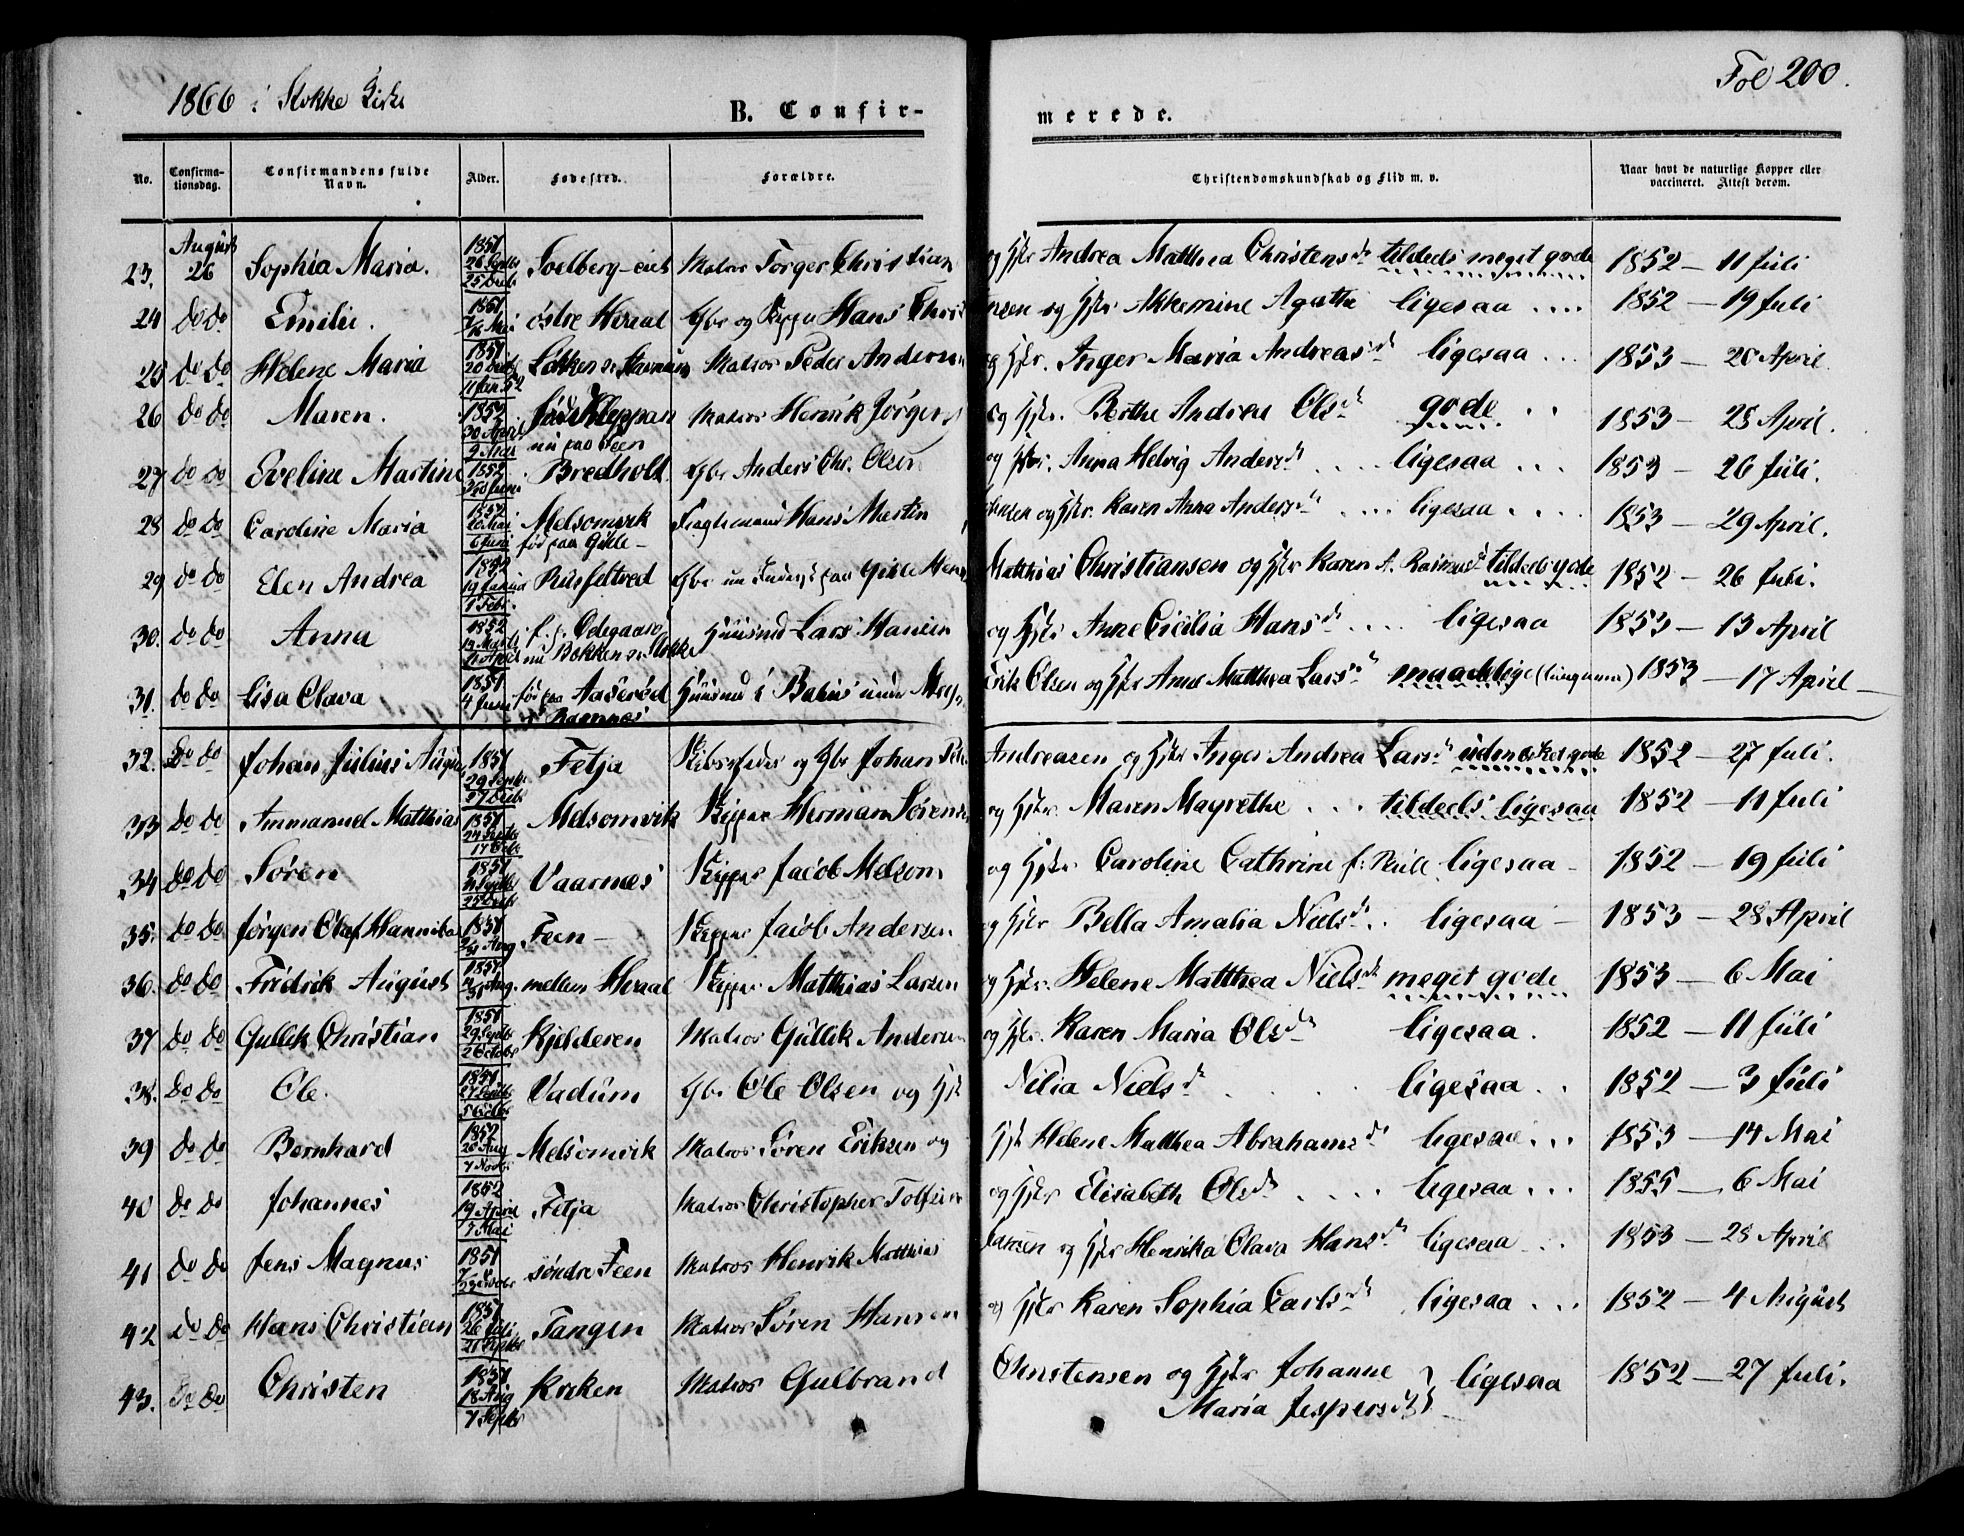 1866 i Stokke Kirke
Fol 200.
B. Confir-
merede.
No. Confirma-tionsdag. Confirmandens fulde Navn. Alder. Fødested. Forældre. Christendomskundskab og Flid m. v. Naar havt de naturlige Kopper eller vaccineret. Attest derom.
23. August 26 Sophia Maria. 1851 26 Septbr 25 Decb Soelberg-eiet Matros Torger Christian og Hstr Andrea Matthea Christensdt tildeels meget gode 1852 - 11 Juli
24 do do Emilie. østre Heraal Gbr og Skipper Hans Chris nsen og Hstr Akkemine Agathe ligesaa .... 1852 - 19 Juli
25 do do Helene Maria 1851 20 Decb 11 Jan 52 Løkken Matros Peder Andersen og Hstr. Inger Maria Andreasdt ligesaa ... 1853 - 20 April
26 do do Maren. 1852 30 April nu paa Feen Matros Henrik Jørgens og Hstr. Berthe Andrea Olsdt gode .. 1853 - 28 April.
27 do do Eveline Martine 1852 Bredholt Gbr Anders Chr. Olsen og Hstr. Anna Helvig Andersdt .... ligesaa ... 1853 - 26 Juli.
28 do do Caroline Maria 1852 20 Mai 6 Juni Melsomvik fød paa Gjille- Hans Martin og Hstr. Karen Anna Andersdt .... ligesaa .... 1853 - 29 April.
29 do do Elen Andrea 1852 19 Januar 1 Febr. Rusfeltved Gbr Matthias Christiansen og Hstr Karen A. Rasmusdt tildeels gode 1852 - 26 Juli.
30. do do Anna 1852 14 Marts 11 April f. p. Odegaard nu Bokken Huusmd Lars Hansen og Hstr Anne Cicilia Hansdt .... ligesaa 1853 - 13 April
31. do do Lisa Olava 1851 4 Juni fød paa Aaserød i Ramnes Huusmd i Erik Olsen og Hstr Anne Matthea Larsdt maadelige 1853 - 17 April
32. Do do Johan Julius August 1851 29 Septbr 27 Decb Fetja Skibsreder og Gbr Johan Peter Andreasen og Hstr Inger Andrea Larsdt udmærket gode 1852 - 27 Juli.
33 do do Ammanuel Matthias 1851 24 Septbr Melsomvik Skipper Herman Sørensen og Hstr. Maren Magrethe ... tildeels ligesaa 1852 - 11 Juli
34 do do Søren 1851 25 Decb Vaarnes Skipper Jacob Melsom og Hstr. Caroline Cathrine f. ligesaa - 1852 - 19 Juli
35. do do Jørgen Olaf Hannibal 1851 Aug Feen - Skipper Jacob Andersen og Hstr Bella Amalia Nielsdt .. ligesaa - 1853 - 28 April
36. do do Fridrik August 1851 Aug. mellem Heraal Skipper Matthias Larsen og Hstr. Helene Matthea Nielsdt meget gode 1853 - 6 Mai
37 do do Gullik Christian 1851 29 Septbr 26 Octobr Kjelderen Matros Gullik Andersen og Hstr. Karen Maria Olsdt ligesaa. 1852 - 11 Juli
38. do do Ole. 1851 27 Septbr 5 Octobr Vadum Gbr Ole Olsen og Hstr Nilia Nielsdt ligesaa .. 1852 - 3 Juli
39 do do Bernhard 1852 28 Aug 7 Novbr Melsomvik Matros Søren Eriksen og Hstr Helene Matthea Abrahamsdt ligesaa ... 1853 - 14 Mai
40 do do Johannes 1852 14 April 7 Mai Fetja Matros Christopher Tolfsen og Hstr Elisabeth Olsdt .... ligesaa ... 1855 - 6 Mai
41 do do Jens Magnus 1851 søndre Feen Matros Henrik Matthias Larsen og Hstr Henrika Olava Hansdt ligesaa ... 1853 - 28 April
42 do do Hans Christian 1851 26 Juli 21 Septbr Tangen Matros Søren Hansen og Hstr Karen Sophia Carlsdt ligesaa ... 1852 - 4 August
43. do do Christen 1851 18 Aug 7 Septbr Kroken Matros Gulbrand Christensen og Hstr Johanne Maria Jespersdt ligesaa 1852 - 27 Juli.